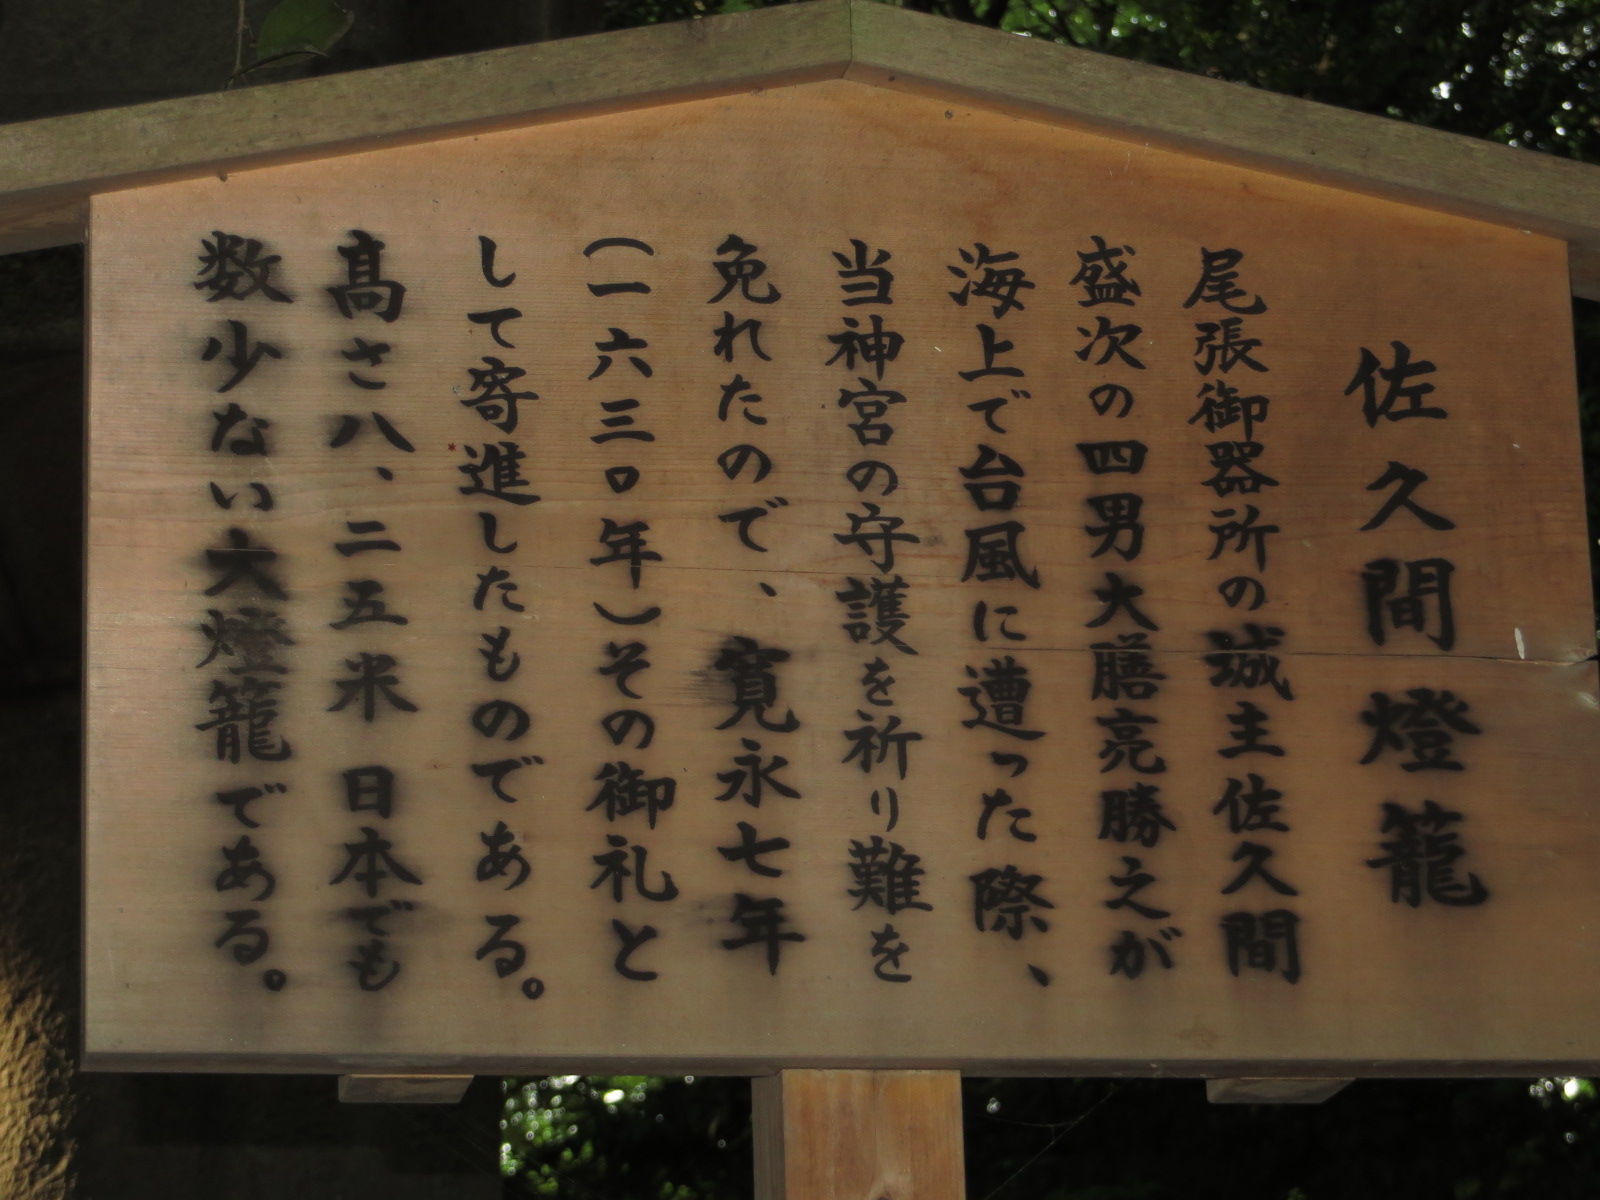 佐久間燈籠
尾張御器所の城主佐久間
盛次の四男大膳亮勝之が
海上で台風に遭った際、
当神宮の守護を祈り難を
免れたので、寛永七年
(一六三〇年)その御礼と
して寄進したものである。
髙さ八、二五米 日本でも
数少ない大燈籠である。